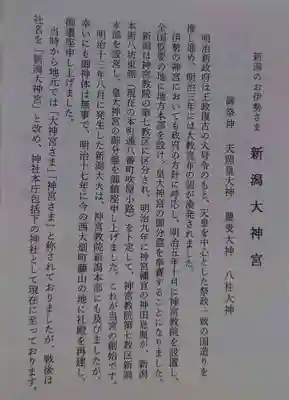 新潟のお伊勢さま
新潟大神宮
御祭神　天照皇大神　豊受大神　八柱大神
明治新政府は王政復古の大号令のもと、天皇を中心とした祭政一致の国造りを
推し進め、明治三年には大教宣布の詔が渙発されました。
伊勢の神宮においても政府の方針に呼応し、明治五年十月に神宮教院を設置し、
全国枢要の地に地方本部を設け、皇大神宮の御分霊を奉斎することになりました。
新潟は神宮教院の第七教区に区分され、明治九年に神宮禰宜の神田息胤が、新潟
本街八坊東堀（現在の本町通八番町吹屋小路）を卜定して、神宮教院第七教区新潟
本部を設営し、皇大神宮の御分霊を御鎮座申し上げました。これが当宮の創始です。
明治十三年八月に発生した新潟大火は、神宮教院新潟本部にも及びましたが、
幸いにも御神体は無事で、明治十七年に今の西大畑町藤山の地に礼殿を再建し、
御遷座申し上げました。
当時から地元では「大神宮さま」「神宮さま」と称されておりましたが、戦後は
社名を「新潟大神宮」と改め、神社本庁包括下の神社として現在に至っております。